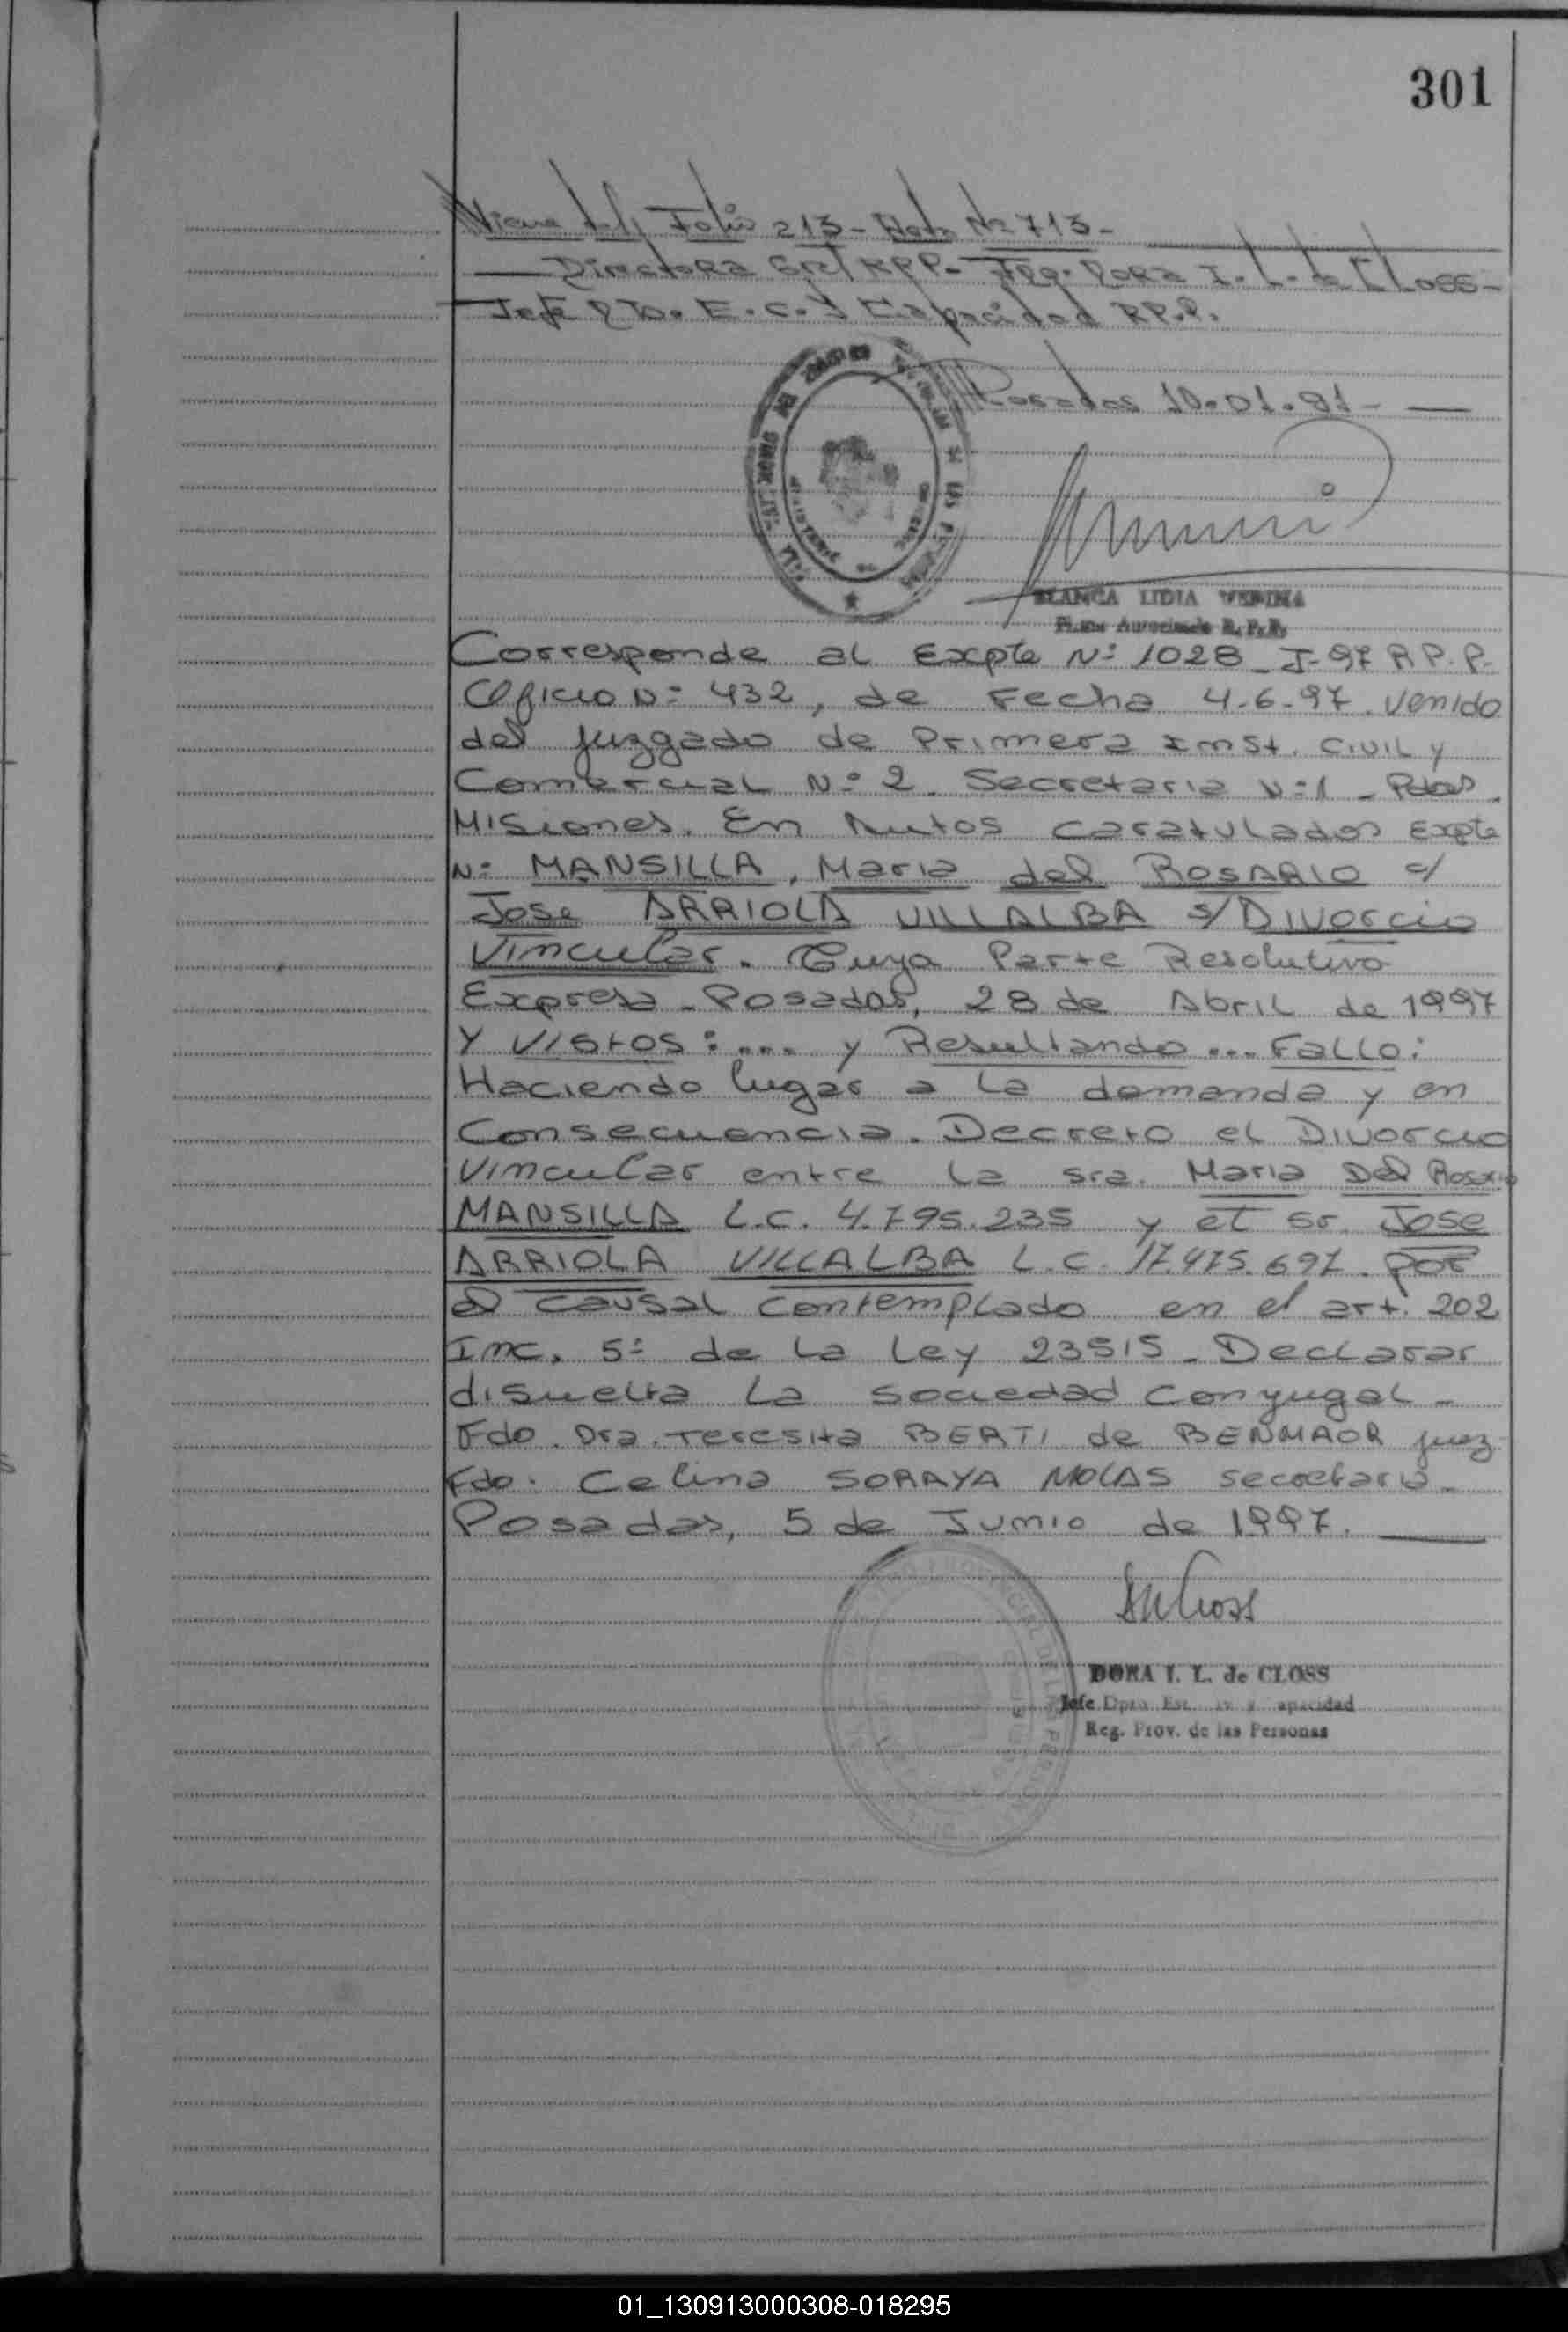 301
Viene del Folio 213 - Acta Nº 713 -
Directora Gral RPP. Fdo. Dora I. L. de Closs -
Jefe Dto. E. C. y Capacidad RP.P.
Posadas 10.01.91 -
BLANCA LIDIA
Firma Autorizada R. P. P.
Corresponde al Expte Nº 1028 - J-97 R P. P.
Oficio Nº 432, de Fecha 4-6-97. venido
del juzgado de Primera Inst. Civil y
Comercial Nº 2. Secretaria Nº 1 - Pdas.
Misiones. En Autos caratulados Expte
Nº MANSILLA, Maria del ROSARIO c/
Jose ARRIOLA VILLALBA s/ Divorcio
Vincular. Cuya Parte Resolutiva
Expresa - Posadas, 28 de Abril de 1997
Y Vistos: .... y Resultando ... Fallo:
Haciendo lugar a la demanda y en
Consecuencia. Decreto el Divorcio
Vincular entre la sra. Maria Del Rosario
MANSILLA L.C. 4.795.235 y el sr. Jose
ARRIOLA VILLALBA L. C. 17.475.697. por
el causal contemplado en el art. 202
Inc. 5º de la Ley 23515 - Declarar
disuelta la sociedad conyugal -
Fdo. Dra. Teresita BERTI de BENMAOR juez
Fdo: Celina SORAYA MOLAS secretaria -
Posadas, 5 de Junio de 1997.
DORA I. L. de CLOSS
Jefe Dpto. Est. Civ. y Capacidad
Reg. Prov. de las Personas
01_130913000308-018295